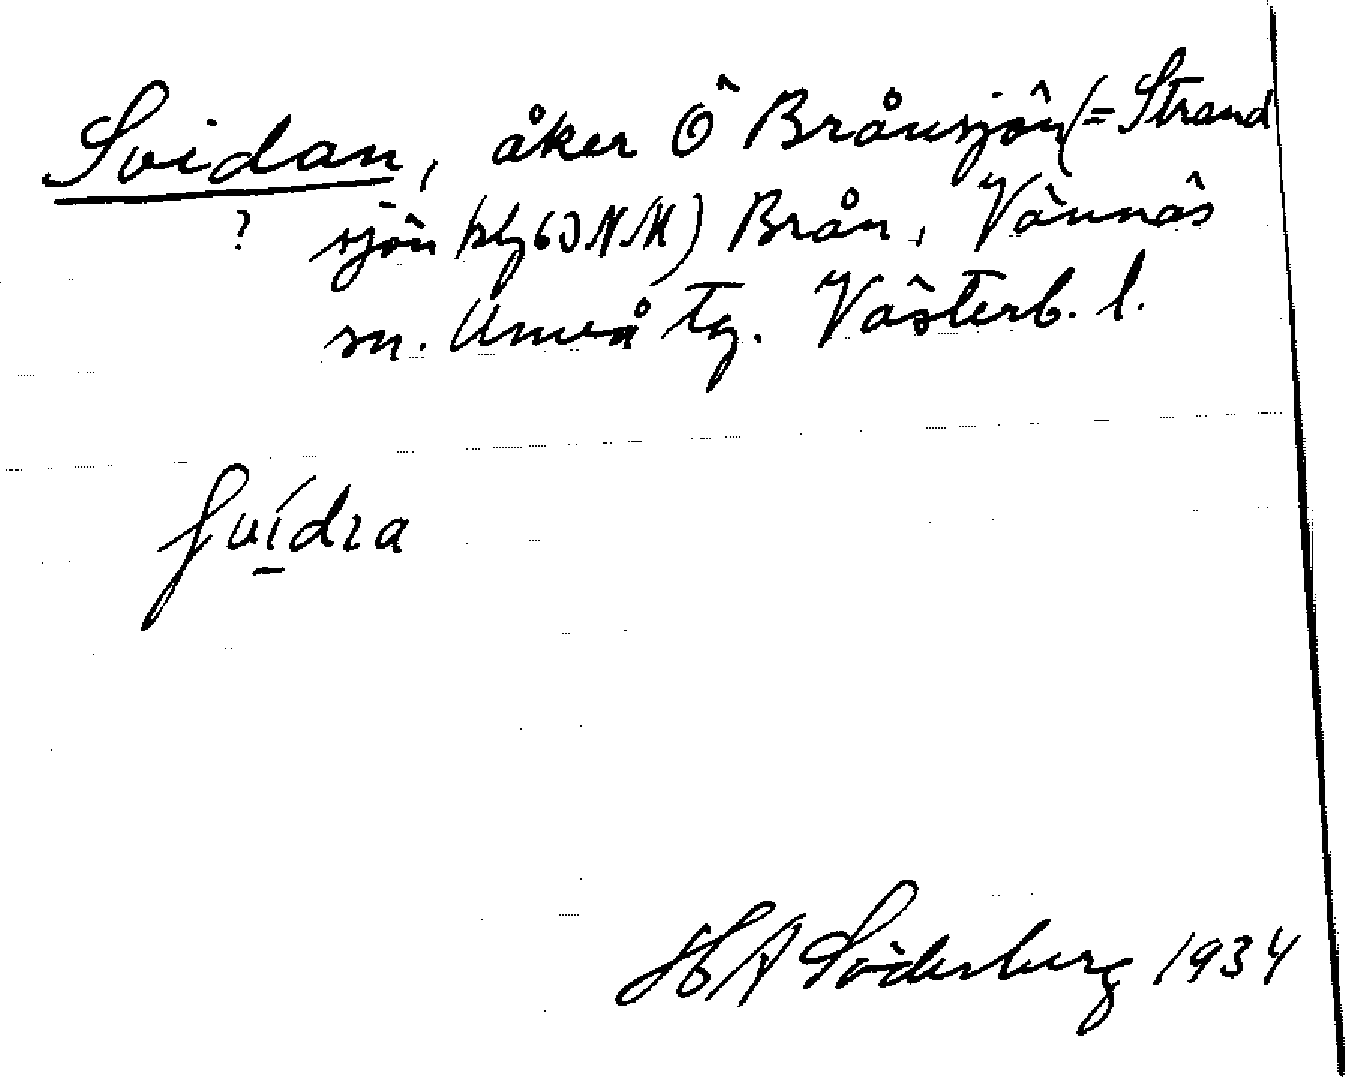 Svidan, åker Ö Brånsjön (= Strand
? sjön kbl 63 NM) Brån, Vännäs
sn. Umeå tg. Västerb. l.
svídra
H A Söderberg 1934